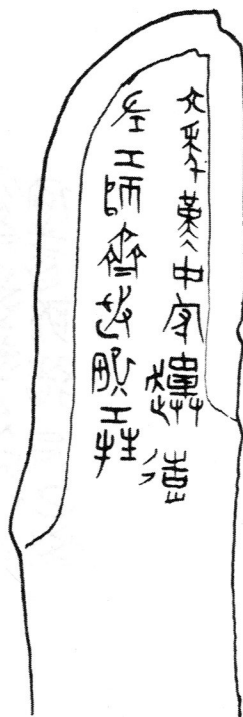 六年漢中守運造
左工師齊丞配工牲